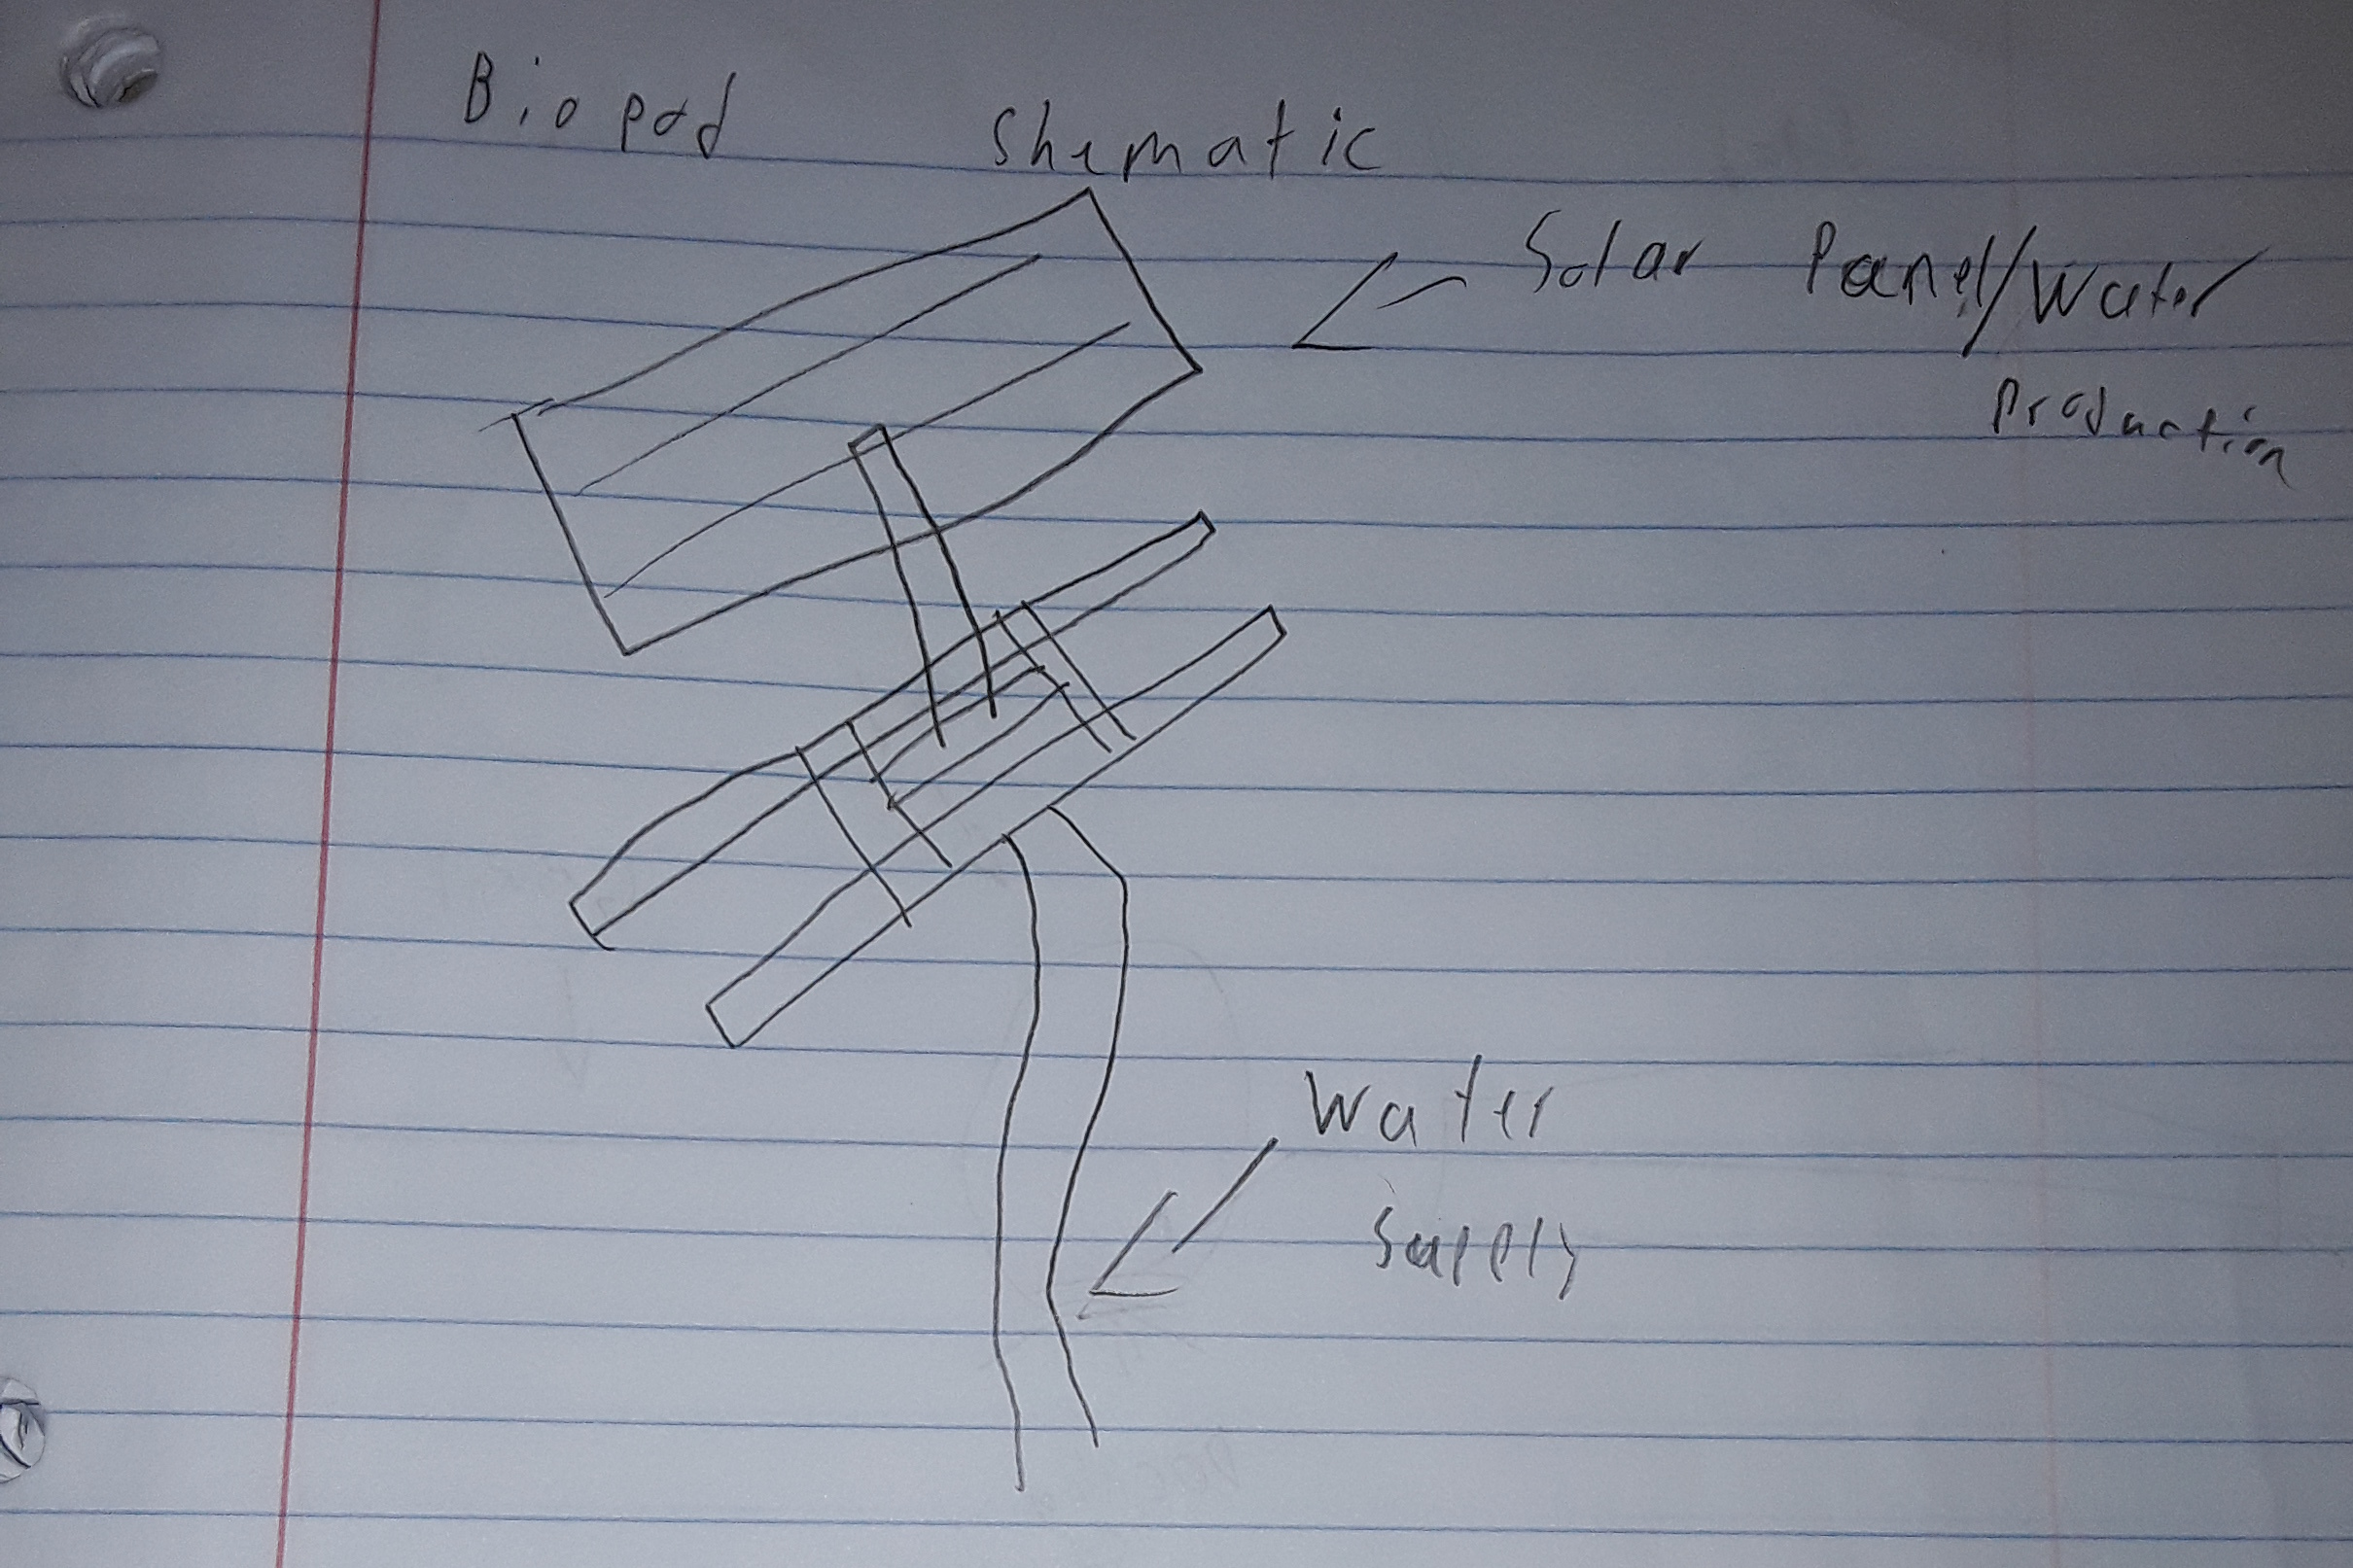 Biopod Shematic
Solar Panel/Water
Production
Water
Supply